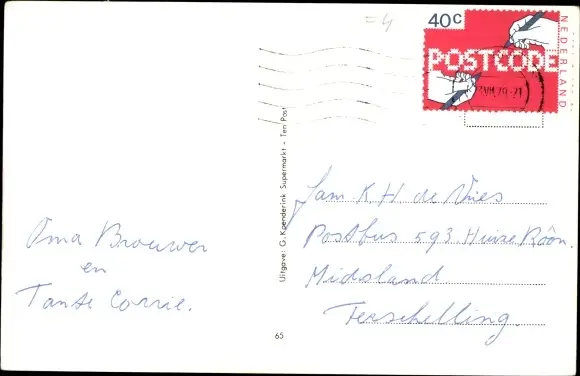 = 4
40c
POSTCODE
NEDERLAND
VII.79-21
Uitgave: G. Koenderink Supermarkt - Ten Post
Fam K.H de Vries
Postbus 593 Huize Róón.
Midsland
Terschelling.
Oma Brouwer
en
Tante Corrie.
65